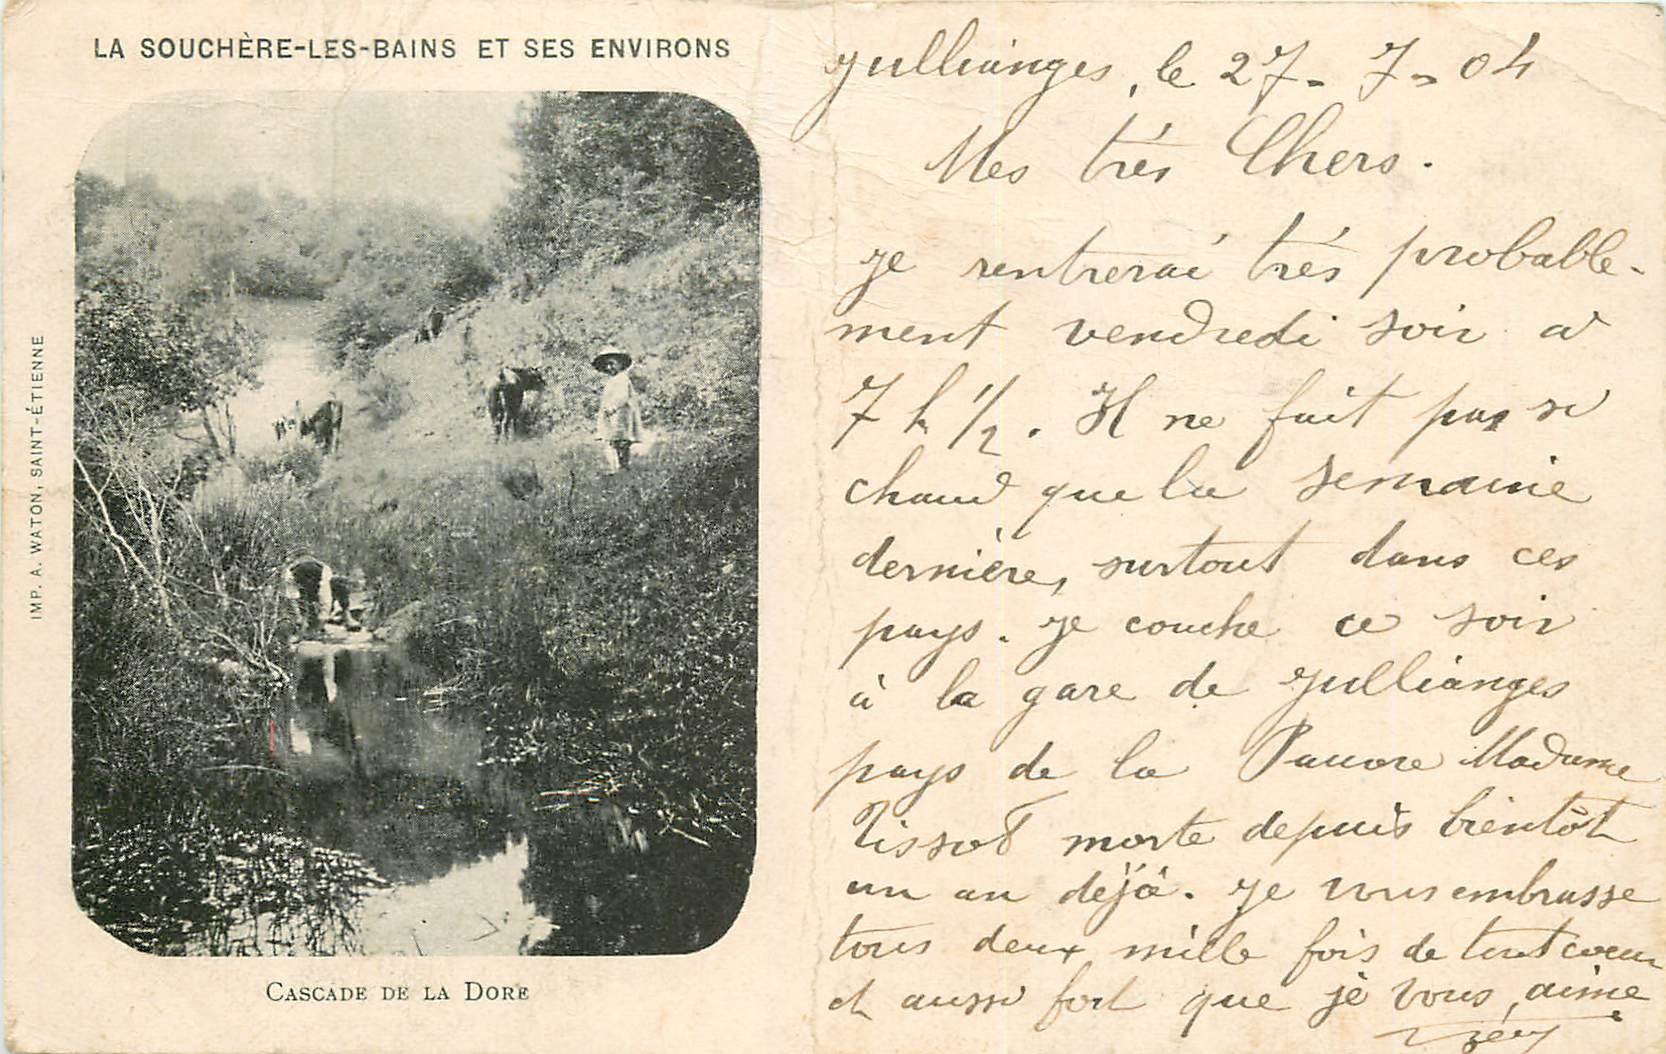 LA SOUCHÈRE-LES-BAINS ET SES ENVIRONS
IMP. A. WATON, SAINT-ÉTIENNE
CASCADE DE LA DORE
Jullianges, le 27-7-04
Mes très Chers.
Je rentrerai très probable-
ment vendredi soir à
7 h 1/2. Il ne fait pas si
chaud que la semaine
dernière, surtout dans ces
pays. Je couche ce soir
à la gare de Jullianges
pays de la Pauvre Madame
Tissot morte depuis bientôt
un an déjà. Je vous embrasse
tous deux mille fois de tout coeur
et aussi fort que je vous aime